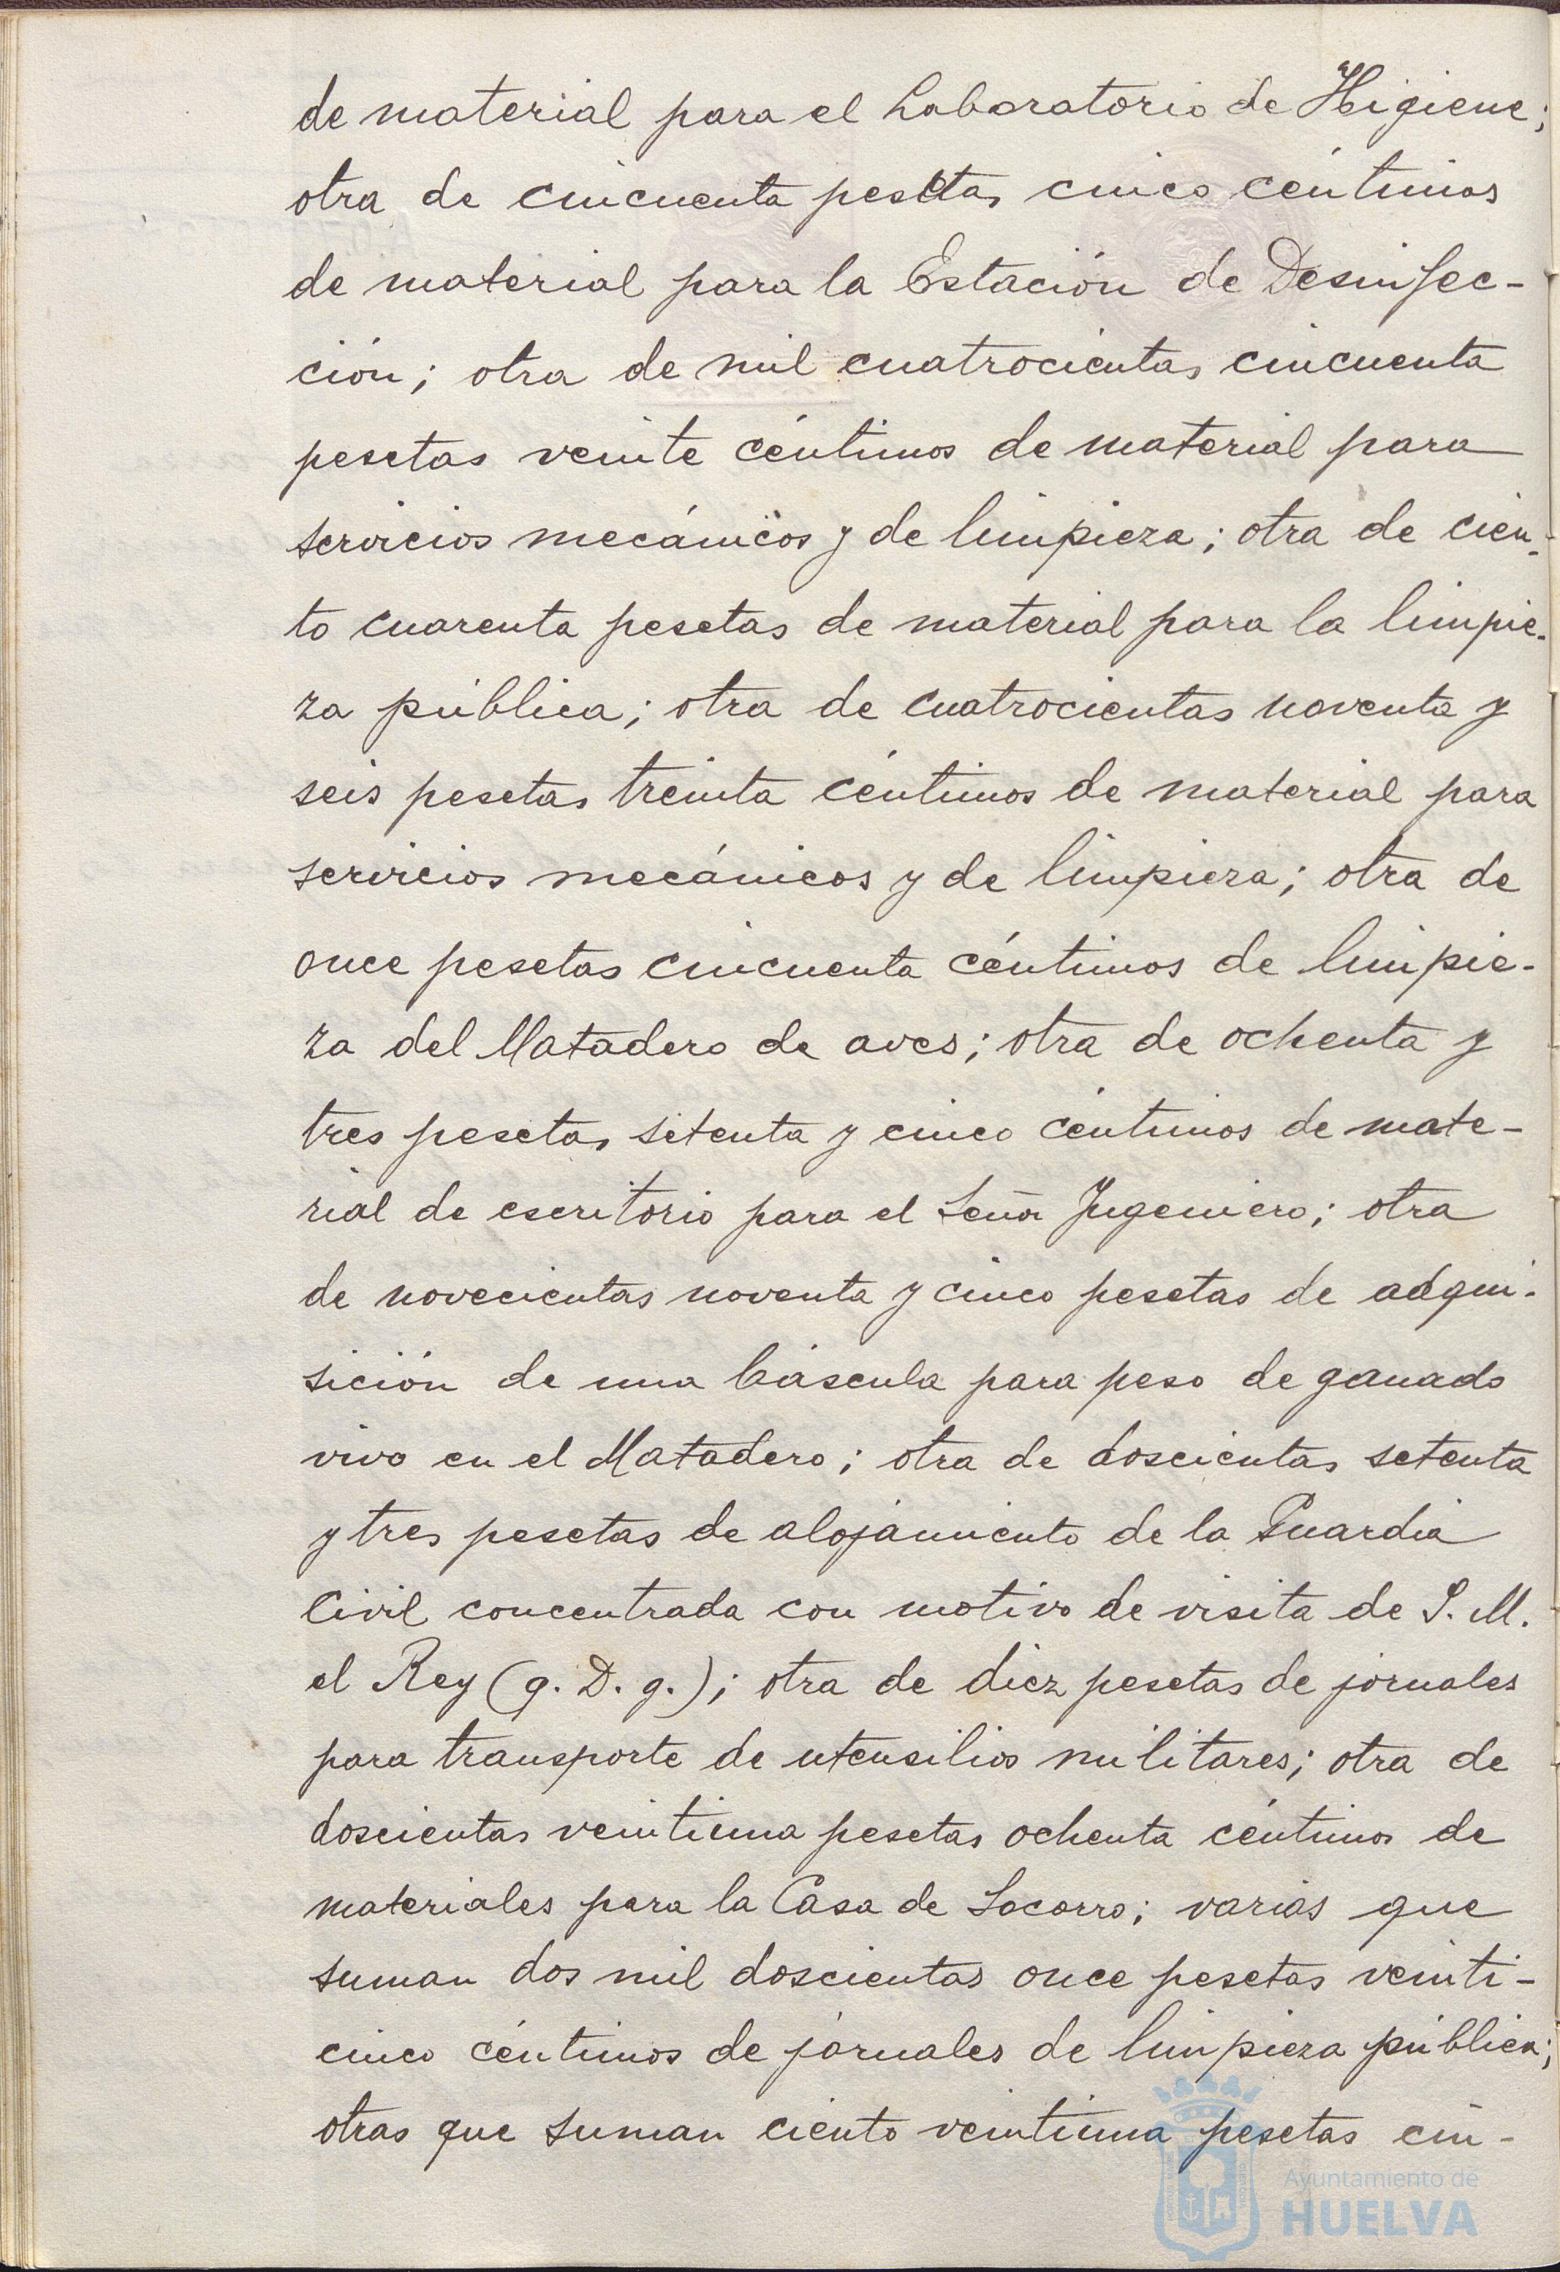 de material para el Laboratorio de Higiene;
otra de cincuenta pesetas cinco céntimos
de material para la Estación de Desinfec-
ción; otra de mil cuatrocientas cincuenta
pesetas veinte céntimos de material para
servicios mecánicos y de limpieza; otra de cien-
to cuarenta pesetas de material para la limpie-
za pública; otra de cuatrocientas noventa y
seis pesetas treinta céntimos de material para
servicios mecánicos y de limpieza; otra de
once pesetas cincuenta céntimos de limpie-
za del Matadero de aves; otra de ochenta y
tres pesetas setenta y cinco céntimos de mate-
rial de escritorio para el Señor Ingeniero; otra
de novecientas noventa y cinco pesetas de adqui-
sición de una báscula para peso de ganado
vivo en el Matadero; otra de doscientas setenta
y tres pesetas de alojamiento de la Guardia
Civil concentrada con motivo de visita de S. M.
el Rey (q. D. g.); otra de diez pesetas de jornales
para transporte de utensilios militares; otra de
doscientas veintiuna pesetas ochenta céntimos de
materiales para la Casa de Socorro; varias que
suman dos mil doscientas once pesetas veinti-
cinco céntimos de jornales de limpieza pública;
otras que suman ciento veintiuna pesetas cin-
Ayuntamiento de
HUELVA